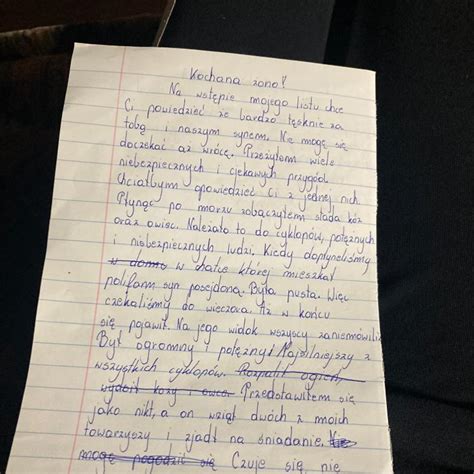 Kochana żono!
Na wstępie mojego listu chce
Ci powiedzieć ze bardzo tęsknie za
tobą i naszym synem. Nie mogę się
doczekać aż wrócę. Przeżyłem wiele
niebezpiecznych i ciekawych przygód.
Chciałbym opowiedzieć Ci z jednej nich.
Płynąc po morzu zobaczyłem stada kóz
oraz owiec. Należało to do cyklopów, potężnych
i niebezpiecznych ludzi. Kiedy dopłyneliśmy
w domu w chatce której mieszkał
polifem syn posejdona. Była pusta. Więc
czekaliśmy do wieczora. Aż w końcu
się pojawił. Na jego widok wszyscy zaniemówili
Był ogromny i potężny! Najsilniejszy z
wszystkich cyklopów. Rozpalił ogień,
wydoił kozy i owce. Przedstawiłem się
jako nikt, a on wziął dwóch z moich
towarzyszy i zjadł na śniadanie. Nie
mogę pogodzić się Czuje się nie